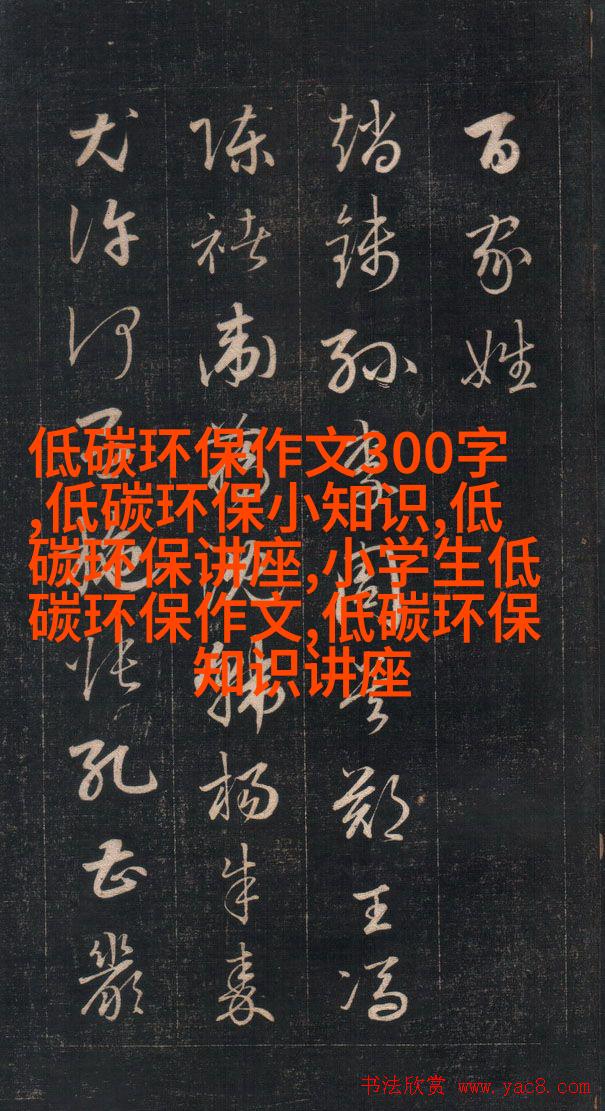 百家姓
趙錢孫李周吳鄭王馮
陳褚衛蔣沈韓楊朱秦
尤許何呂施張孔曹嚴
低碳环保作文300字
,低碳环保小知识,低
碳环保讲座,小学生低
碳环保作文,低碳环保
知识讲座
书法欣赏 www.yac8.com